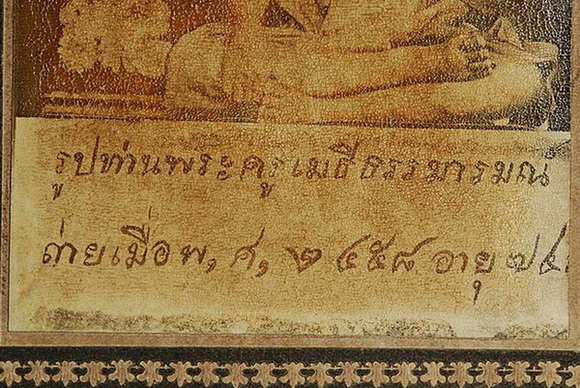 รูปท่านพระครูเมธีธรรมารมณ์
ถ่ายเมื่อ พ, ศ, ๒๔๕๘ อายุ